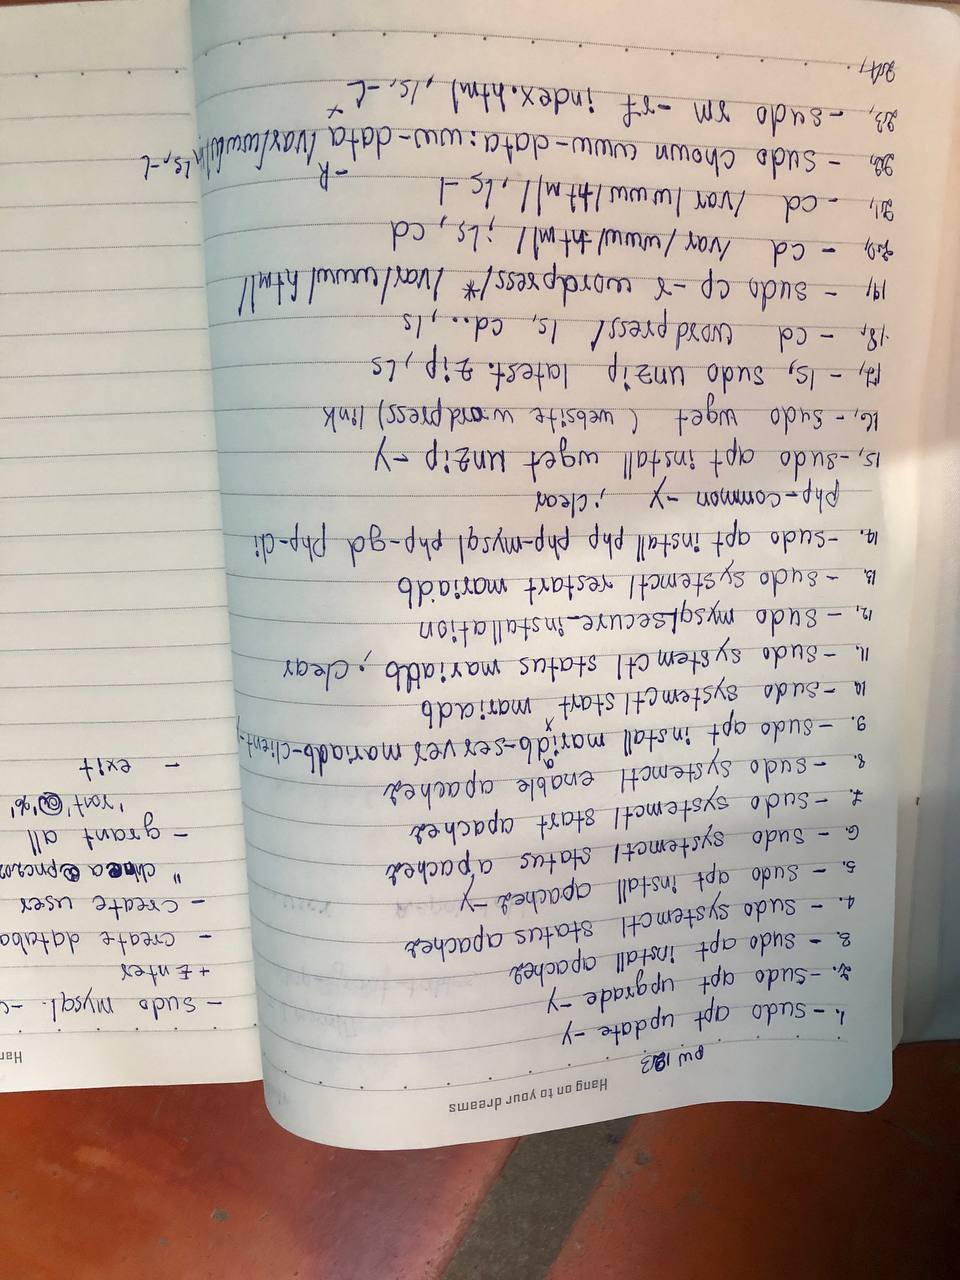 Hang on to your dreams
pw 123
1. - sudo apt update -y
2. - sudo apt upgrade -y
3. - sudo apt install apache2
4. - sudo systemctl status apache2
5. - sudo apt install apache2 -y
6. - sudo systemctl status apache2
7. - sudo systemctl start apache2
8. - sudo systemctl enable apache2
9. - sudo apt install mariadb-server mariadb-client -y
10. - sudo systemctl start mariadb
11. - sudo systemctl status mariadb ; clear
12, - sudo mysql_secure_installation
13. - sudo systemctl restart mariadb
14. - sudo apt install php php-mysql php-gd php-cli
php-common -y ; clear
15, - sudo apt install wget unzip -y
16, - sudo wget ( website wordpress) link
17, - ls, sudo unzip latest.zip , ls
18, - cd wordpress/ ls, cd.. , ls
19, - sudo cp -r wordpress/* /var/www/html/
20, - cd /var/www/html/ ; ls , cd
21, - cd /var/www/html/ , ls -l
22, - sudo chown www-data:ww-data -R /var/www/ ls, -l
23, - sudo rm -rf index.html , ls, -l
24, .
Har
- sudo mysql. -u
+ Enter
- create databa
- create user
" @pnc202
- grant all
'root'@'%'
- exit